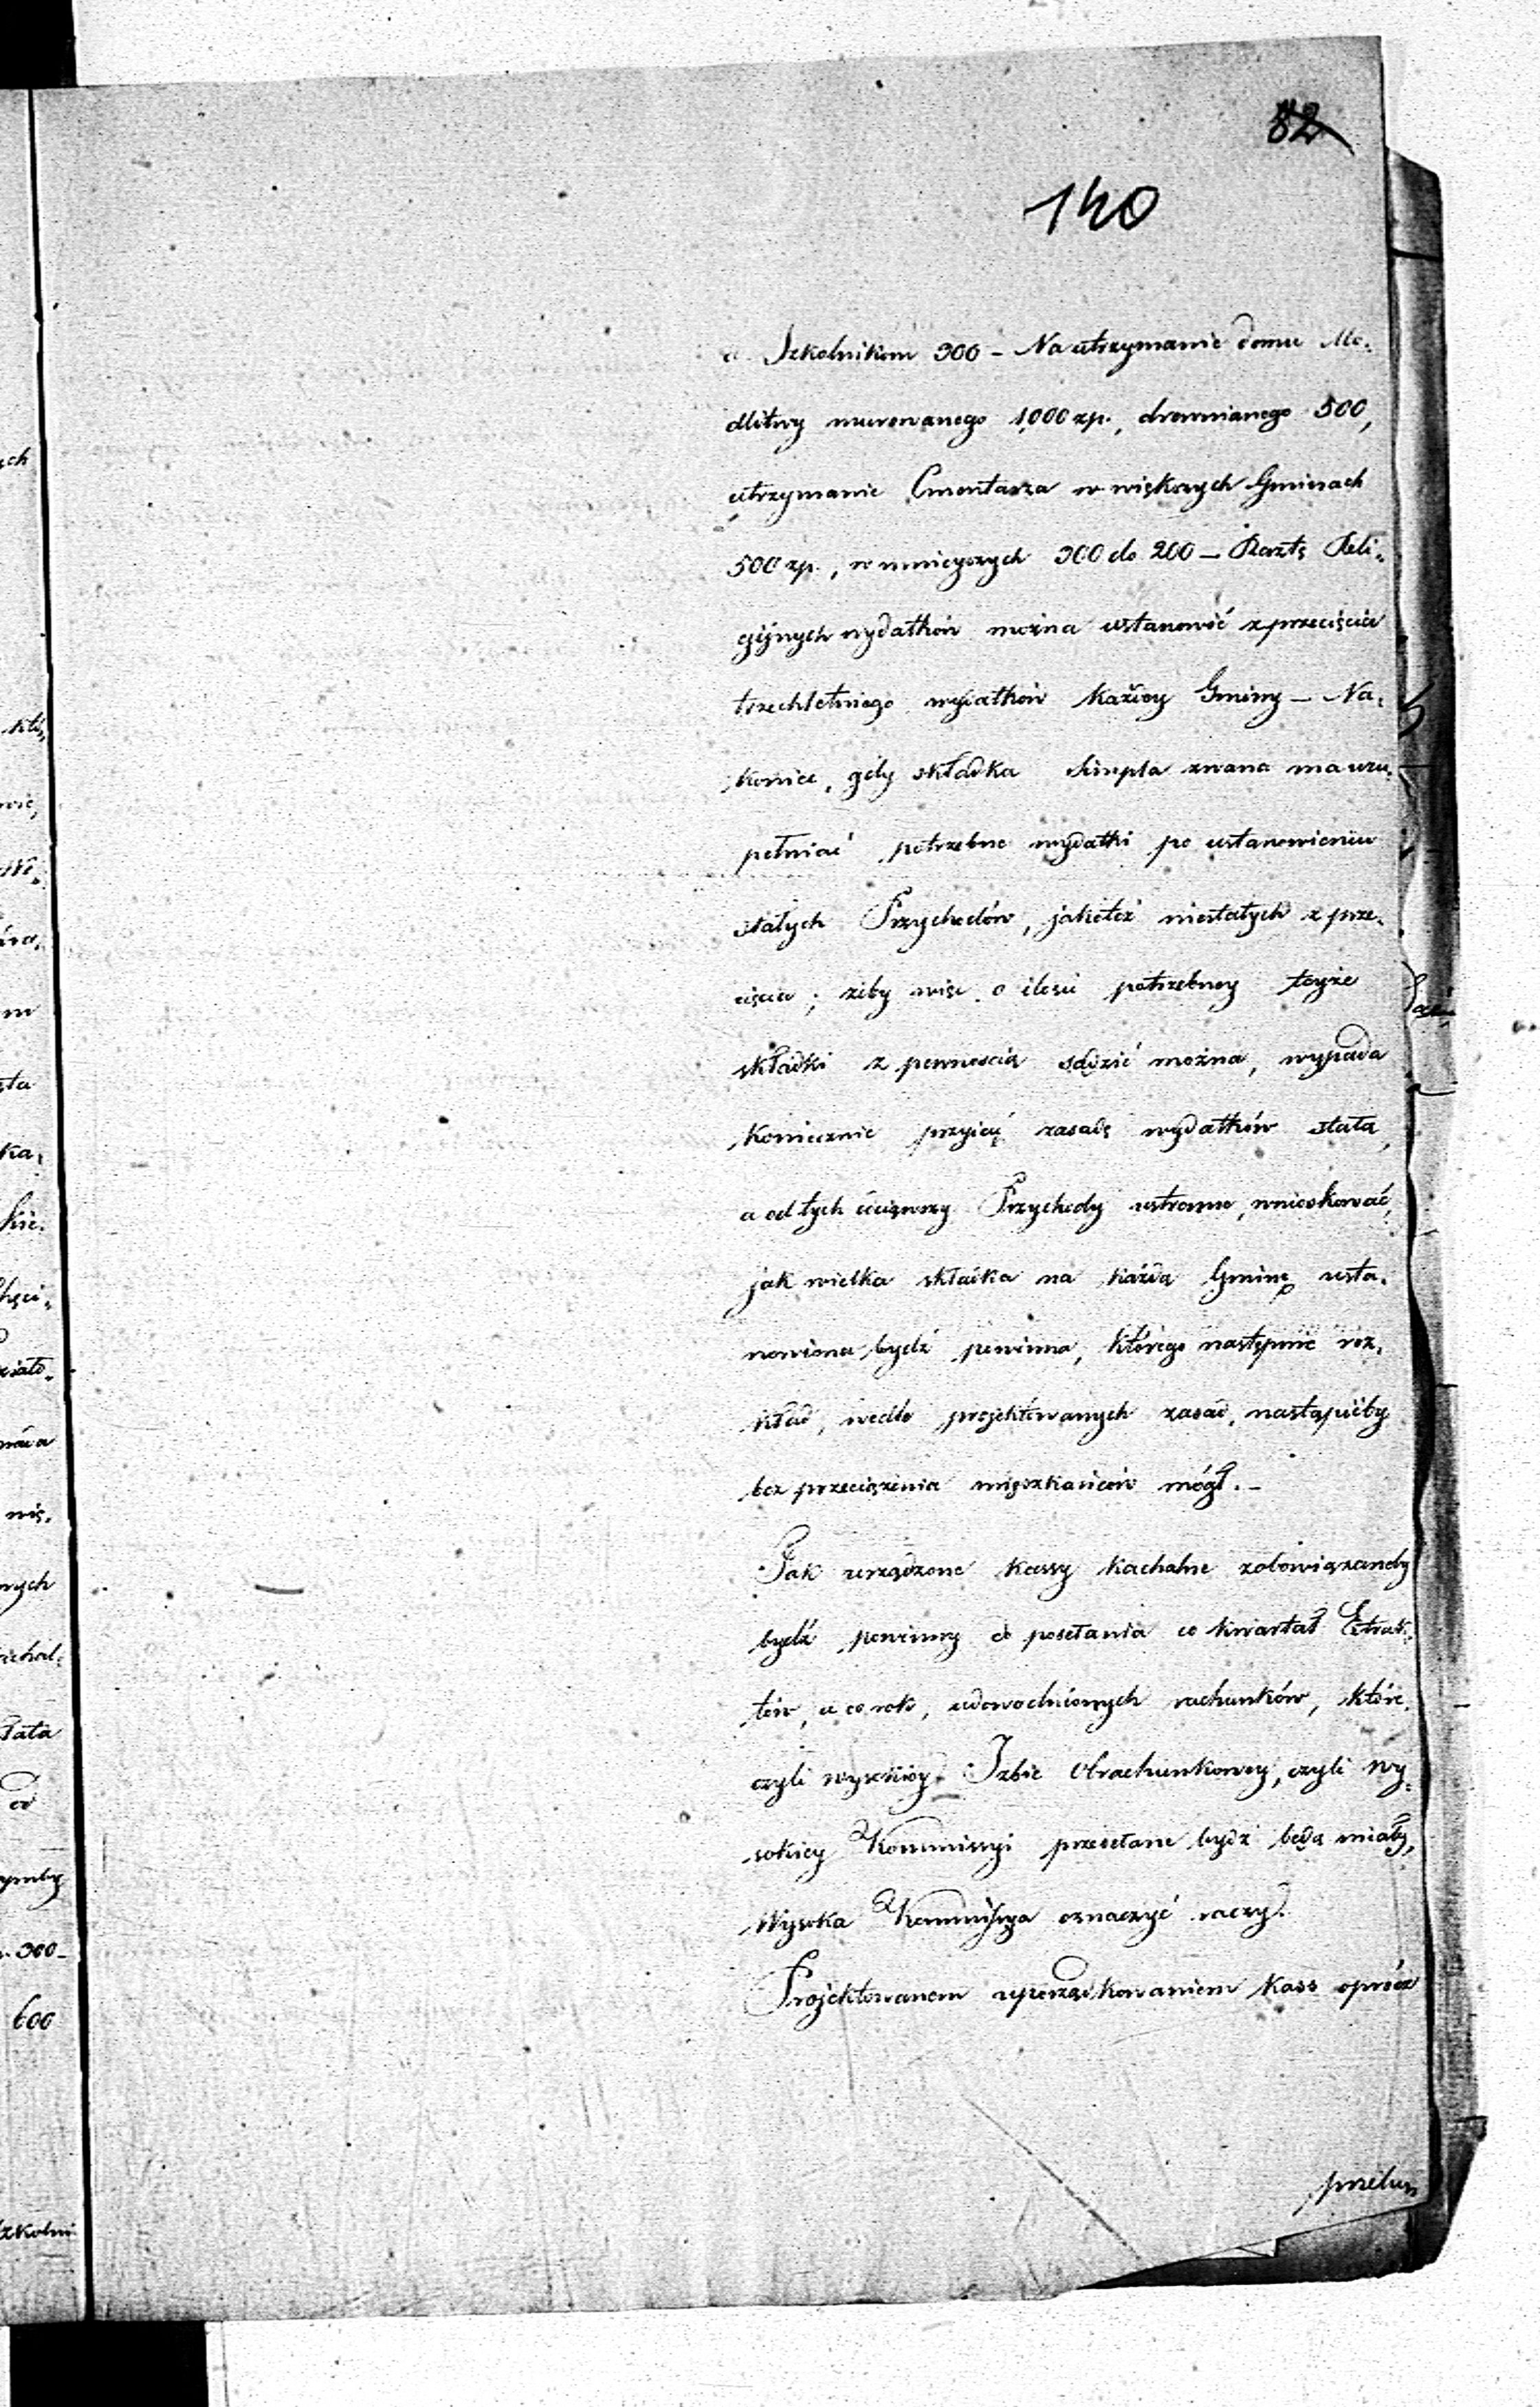 82
140
a Szkolnikom 300 – Na utrzymanie domu Mo-
dlitwy murowanego 1,000 zp., drewnianego 500,
utrzymanie Cmentarza w większych Gminach
500 zp., w mnieyszych 300 do 200 – Resztę Reli-
gijnych wydatków można ustanowić z przecięcia
trzechletniego wydatków każdey Gminy – Na-
koniec, gdy składka Simpla zwana ma uzu-
pełniać potrzebne wydatki po ustanowieniu
stałych Przychodów, jakoteż niestałych z prze-
cięcia; żeby więc o ilości potrzebney teyże
składki z pewnością sądzić można, wypada
koniecznie przyiąć zasadę wydatków stałą,
a od tych ściągnąwszy Przychody ustronne, wnioskować,
jak wielka składka na każdą Gminę usta-
nowiona bydź powinna, którego następnie roz-
kład, wedle projektowanych zasad, nastąpićby
bez przeciążenia mięszkańców mógł. –
Tak urządzone kassy kachalne zobowiązaneby
bydź powinny do posełania co kwartał Extrak-
tów, a co rok, udowodnionych rachunków, które
czyli wysokiey Izbie Obrachunkowey, czyli wy-
sokiey Kommissyi przesełane bydź będą miały,
Wysoka Kommissya oznaczyć raczy.
Projektowanem uporządkowaniem Kass oprócz
przeku-
ych
ka,
nych
600
300 –